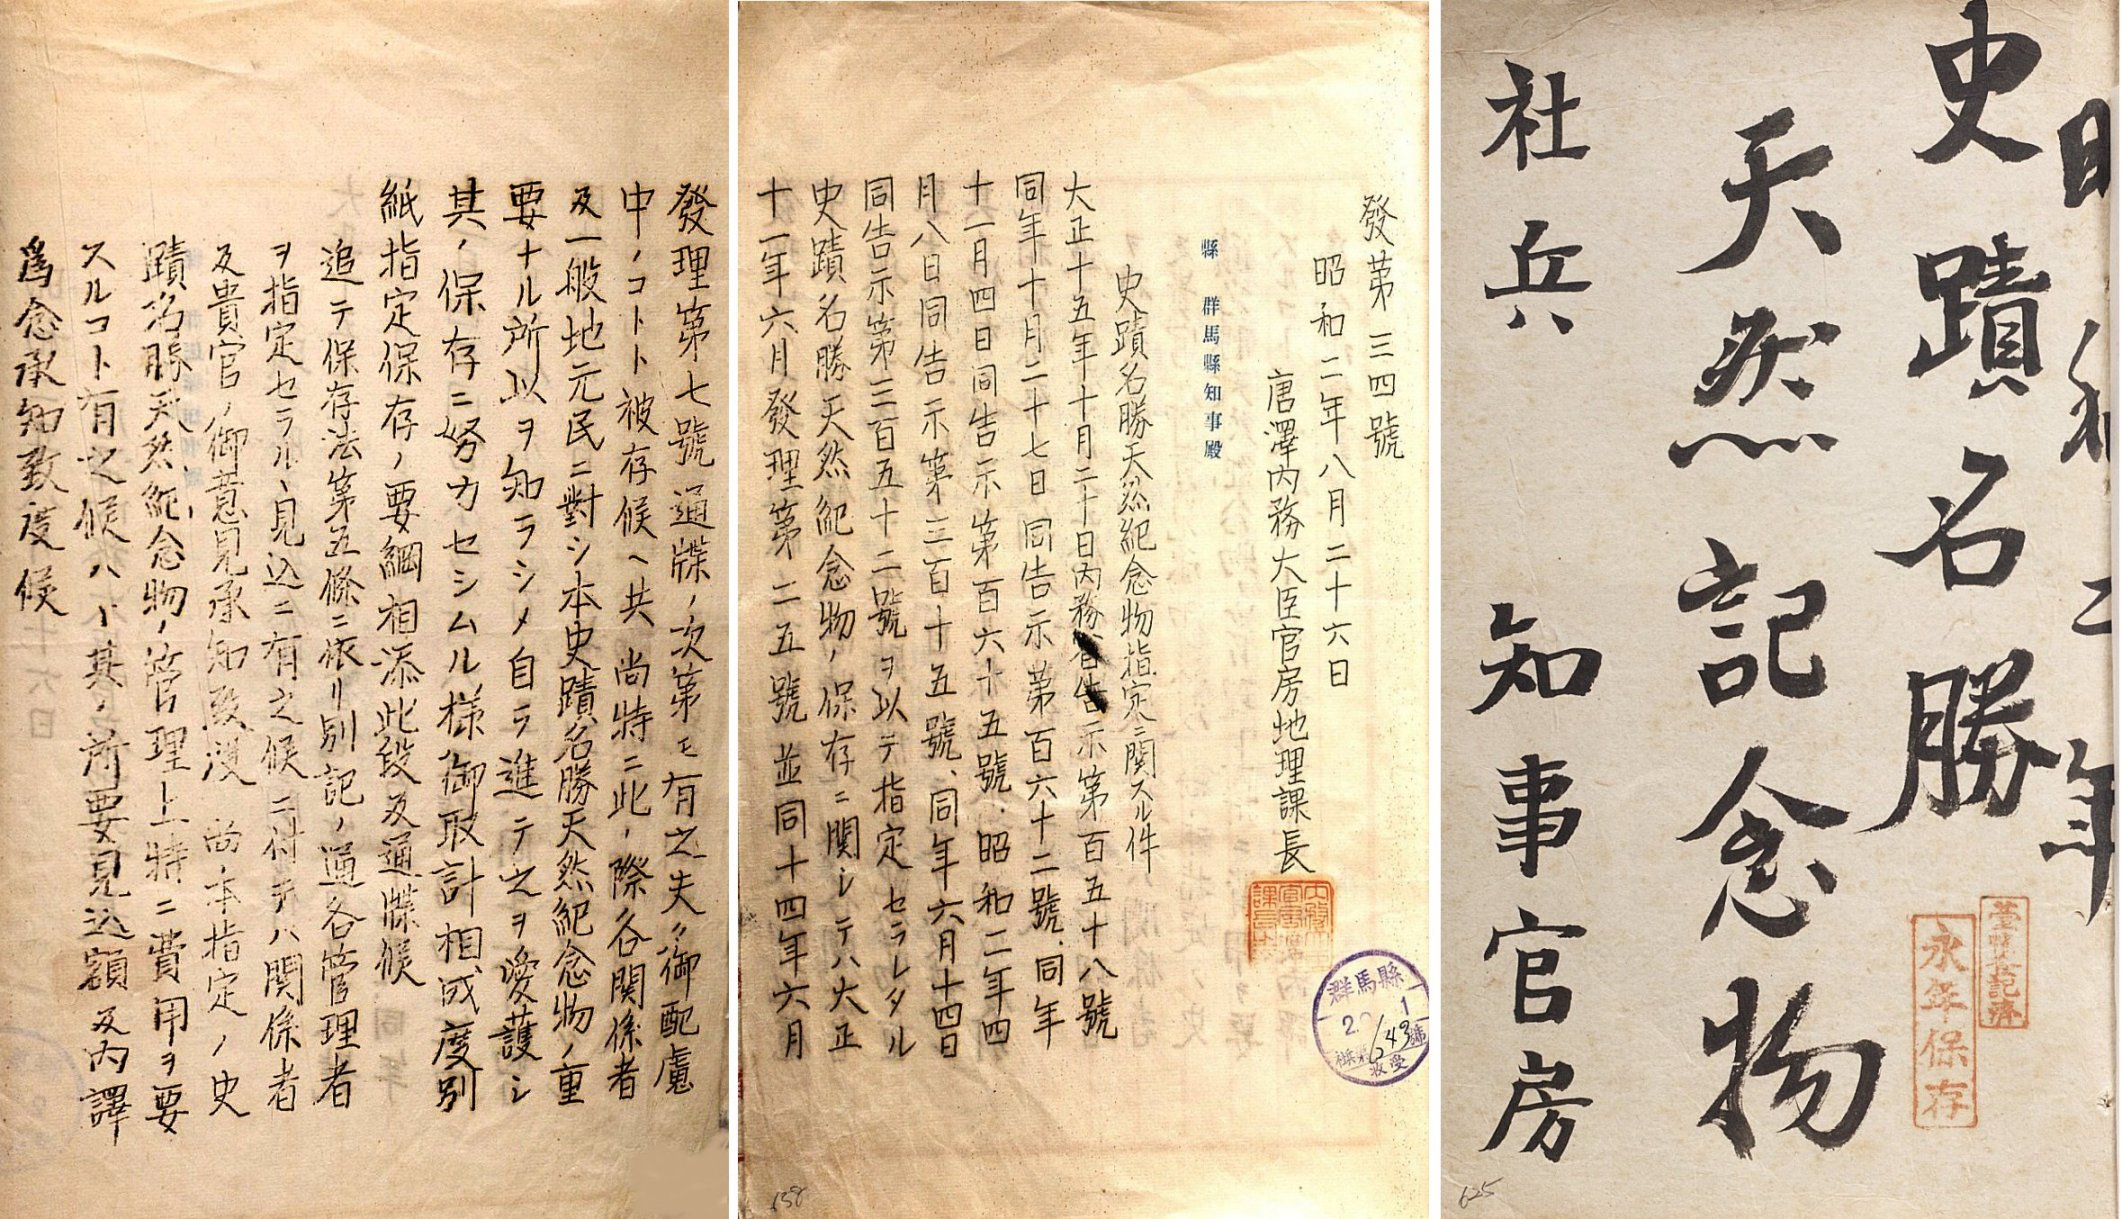 昭和二年
史蹟名勝
天然記念物
社兵
知事官房
永年保存
臺帳登記濟
625
發第三四號
昭和二年八月二十六日
唐澤內務大臣官房地理課長
縣 群馬縣知事殿
史蹟名勝天然紀念物指定ニ関スル件
大正十五年十月二十日內務省告示第百五十八號
同年十月二十七日同告示第百六十二號、同年
十一月四日同告示第百六十五號、昭和二年四
月八日同告示第三百十五號、同年六月十四日
同告示第三百五十二號ヲ以テ指定セラレタル
史蹟名勝天然紀念物ノ保存ニ関シテハ大正
十一年六月發理第二五號並同十四年六月
群馬縣
643
158
發理第七號通牒ノ次第モ有之夫々御配慮
中ノコトト被存候ヘ共尚特ニ此ノ際各関係者
及一般地元民ニ對シ本史蹟名勝天然紀念物ノ重
要ナル所以ヲ知ラシメ自ラ進テ之ヲ愛護シ
其ノ保存ニ努力セシムル様御取計相成度別
紙指定保存ノ要綱相添此段及通牒候
追テ保存法第五條ニ依リ別記ノ通各管理者
ヲ指定セラルヽ見込ニ有之候ニ付テハ関係者
及貴官ノ御意見承知致度尚本指定ノ史
蹟名勝天然紀念物ノ管理上特ニ費用ヲ要
スルコト有之候ハヽ其ノ所要見込額及內譯
爲念承知致度候